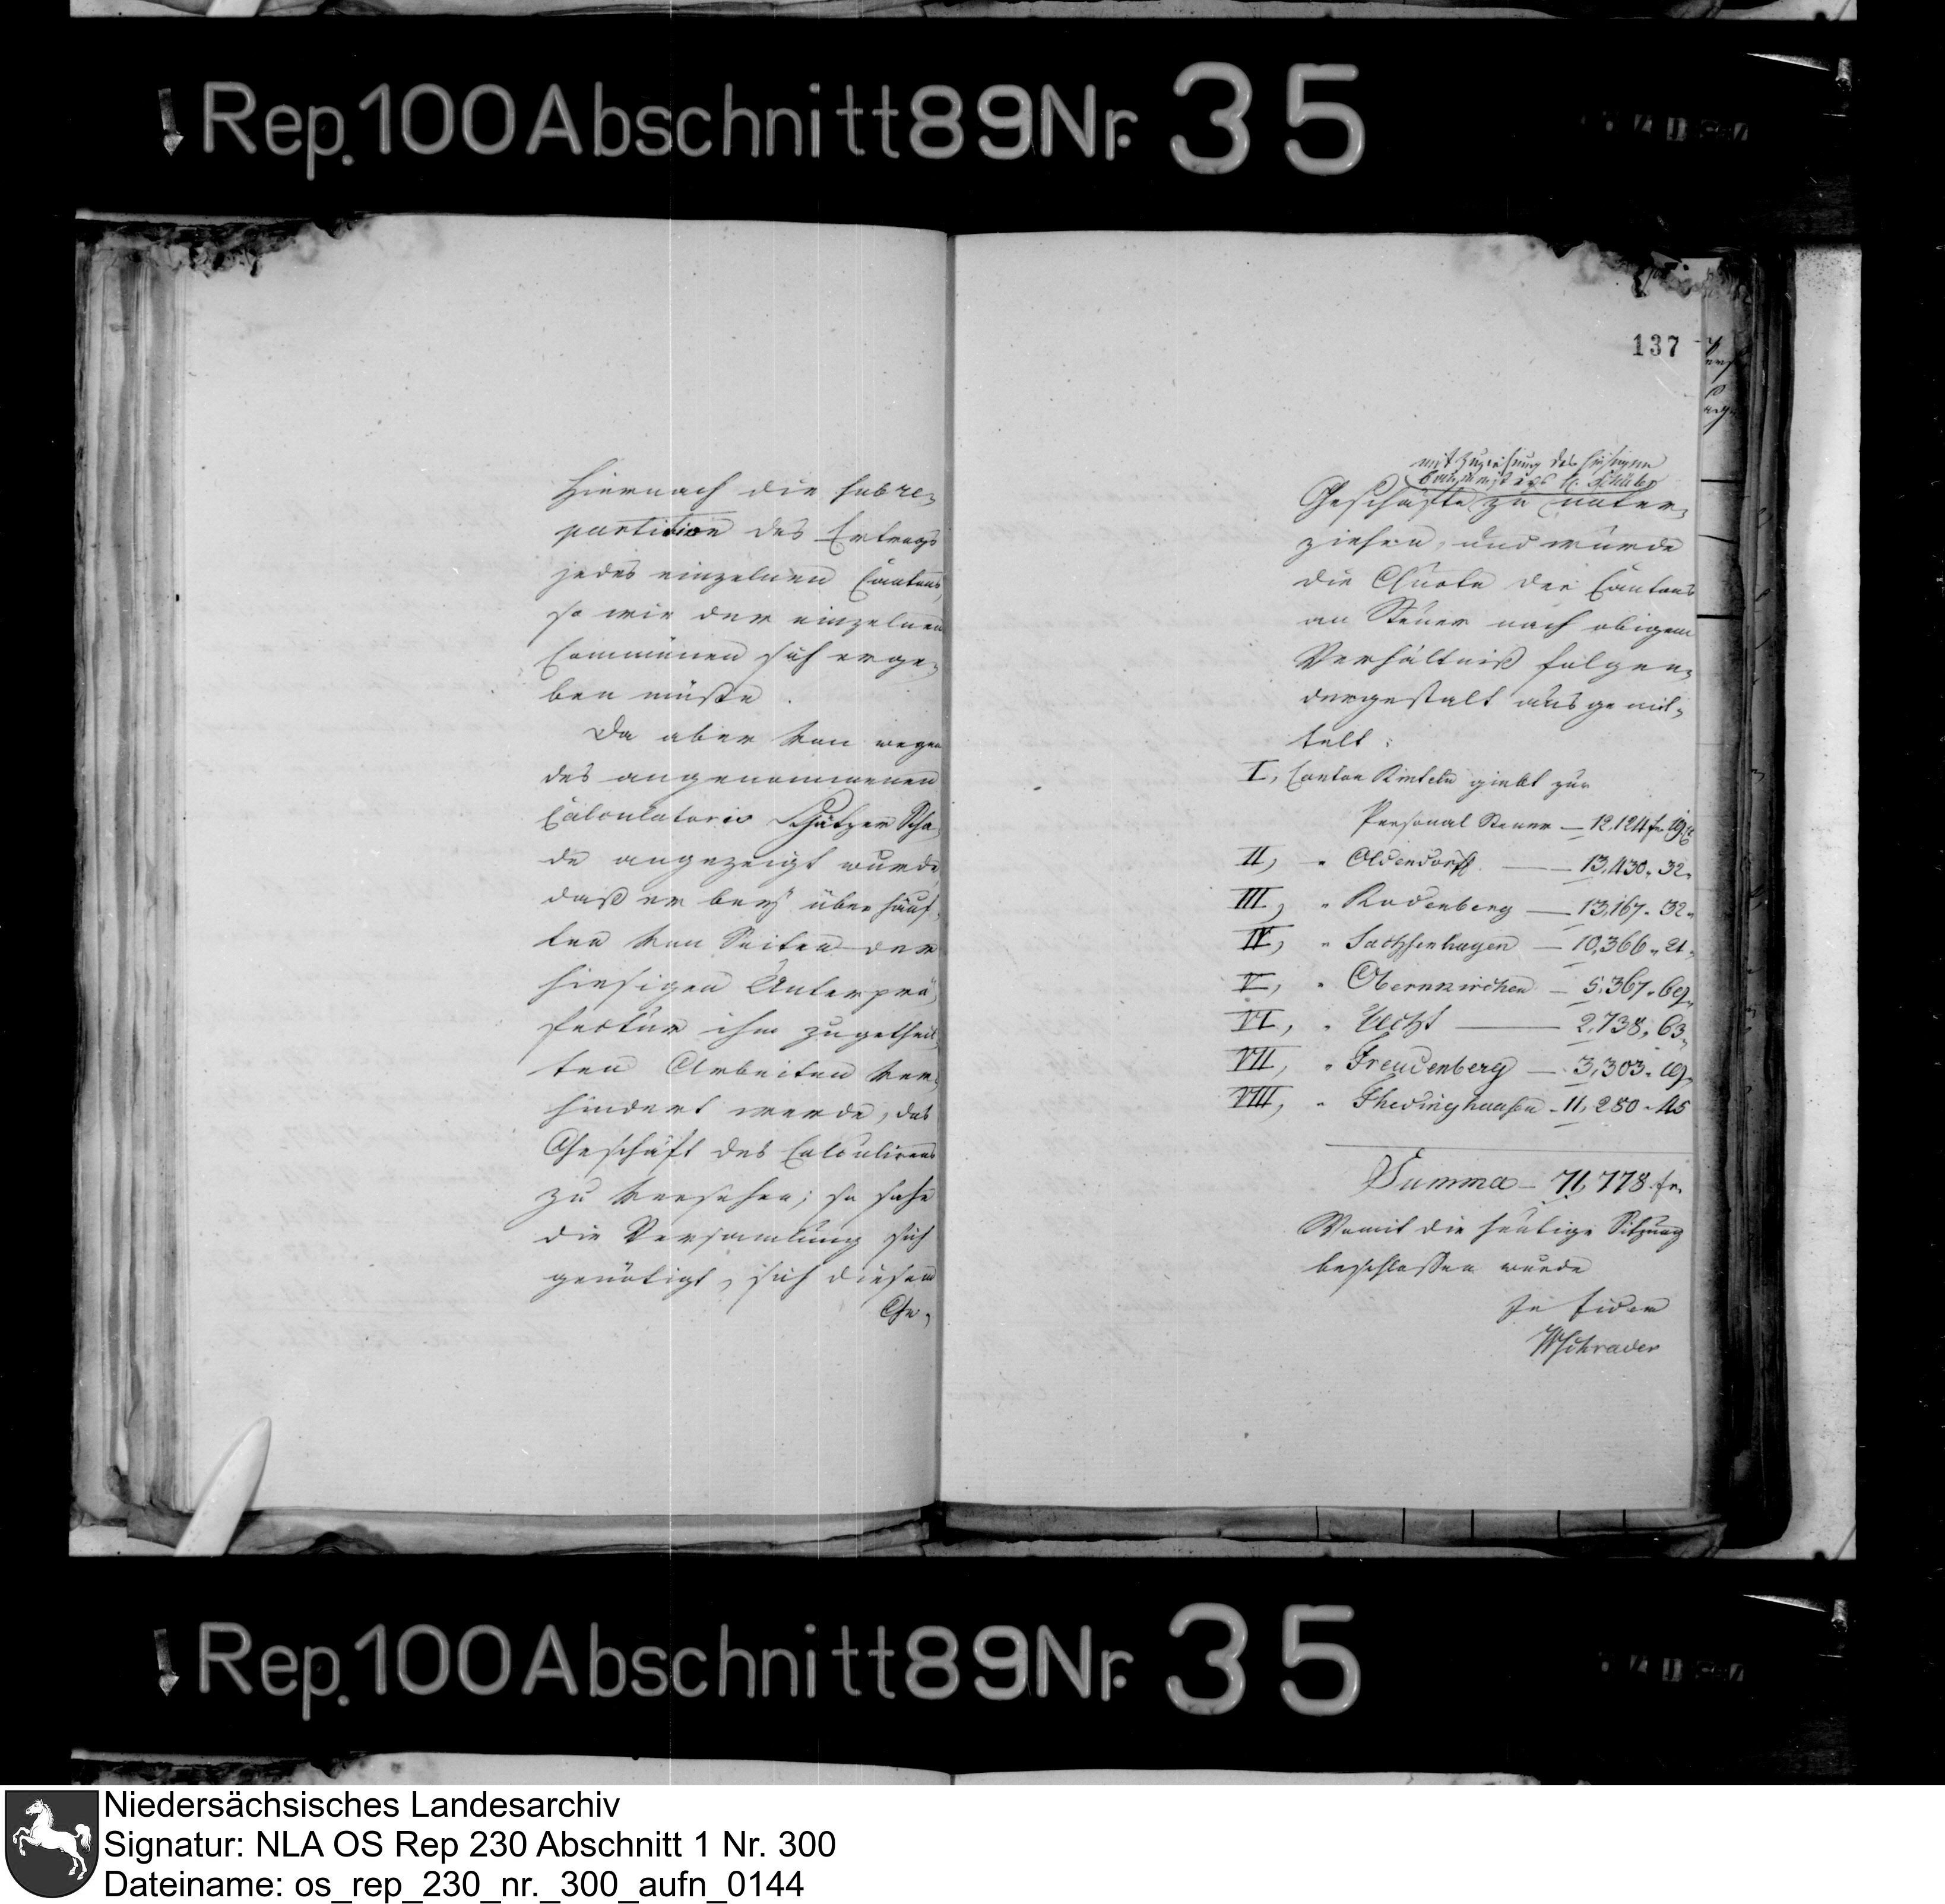 Rep.100Abschnitt89Nr. 35
137
Hiernach die subre-
partition des Ertrags
jedes einzelnen Cantons,
so wie der einzelnen
Communen sich erge-
ben müßte.
Da aber von wegen
des angenommenen
Calculatoris Scha-
de angezeigt wurde,
daß er bey überhäuf-
ten von Seiten der
hiesigen Unterprä-
fectur ihm zugetheil-
ten Arbeiten ver-
hindert werde, das
Geschäft des Calculirens
zu versehen; so sahe
die Versamlung sich
genötigt, sich diesem
Ge-
mit Zuziehung des hiesigen
Geschäfte zu unter-
ziehen, und wurde
die Quote der Cantons
an Steuer nach obigem
Verhältniß folgen-
dergestalt ausgemit-
telt:
I, Canton Rinteln giebt zur
Personal Steuer — 12,124 fr. 19
II, " Oldendorff — 13,430. 32.
III, " Rodenberg — 13,167. 32.
IV, " Sachsenhagen — 10,366. 21.
V, " Obernkirchen — 5,367. 69.
VI, " Uchte — 2,738. 63.
VII, " Freudenberg — 3,303. 19.
VIII, " Thedinghausen - 11,280. 45
Summa — 71,778 fr.
Womit die heutige Sitzung
beschlossen wurde
In fidem
WSchrader
Rep.100Abschnitt89Nr. 35
Niedersächsisches Landesarchiv
Signatur: NLA OS Rep 230 Abschnitt 1 Nr. 300
Dateiname: os_rep_230_nr._300_aufn_0144